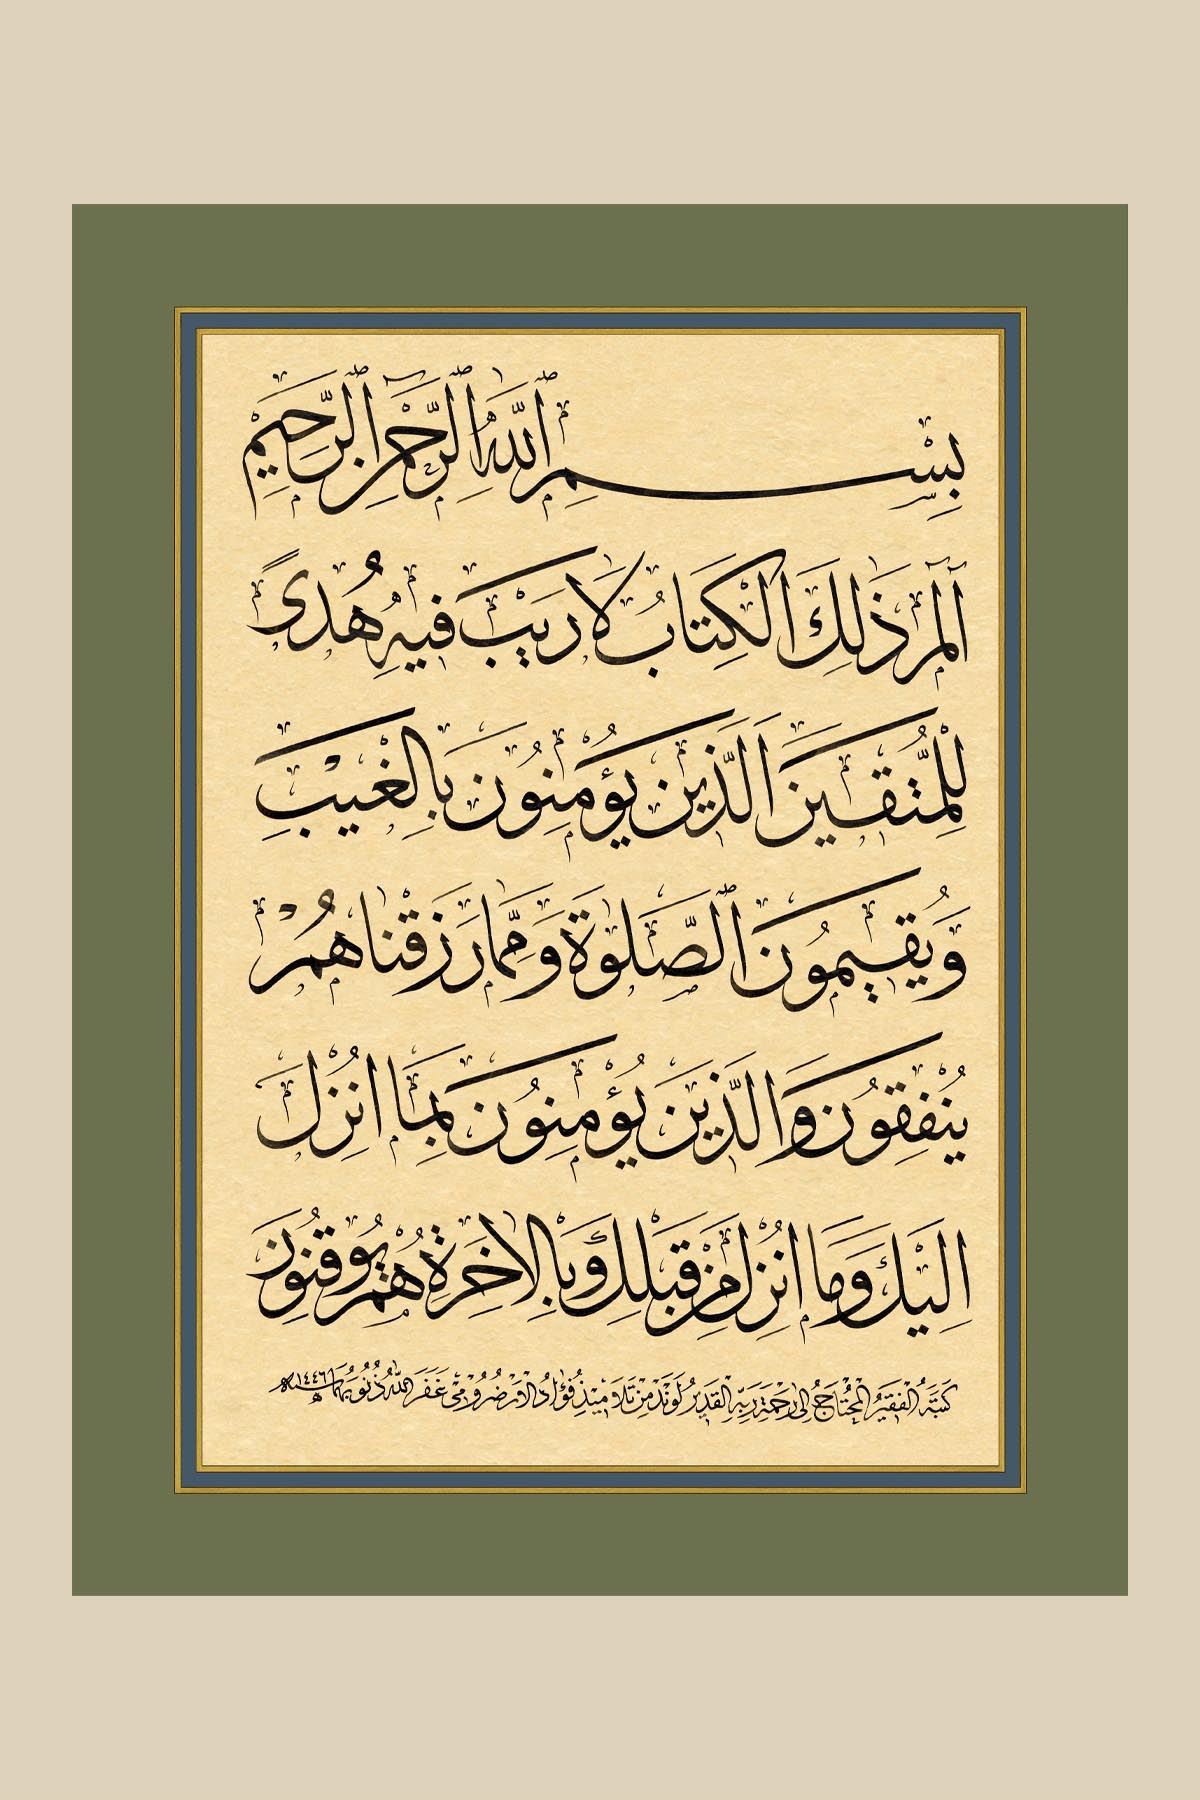 بِسْمِ اللّٰهِ الرَّحْمٰنِ الرَّحِيمِ
الٓمٓ ذٰلِكَ الْكِتَابُ لَا رَيْبَ فِيهِ هُدًى
لِلْمُتَّقِينَ الَّذِينَ يُؤْمِنُونَ بِالْغَيْبِ
وَيُقِيمُونَ الصَّلٰوةَ وَمِمَّا رَزَقْنَاهُمْ
يُنْفِقُونَ وَالَّذِينَ يُؤْمِنُونَ بِمَا اُنْزِلَ
اِلَيْكَ وَمَا اُنْزِلَ مِنْ قَبْلِكَ وَبِالْاٰخِرَةِ هُمْ يُوقِنُونَ
كَتَبَهُ الْفَقِيرُ الْمُحْتَاجُ اِلٰى رَحْمَةِ رَبِّهِ الْقَدِيرِ لَوَنْد مِنْ تَلَامِيذِ فُؤَاد الْاَرْضُرُومِي غَفَرَ اللّٰهُ ذُنُوبَهُمَا سنة ١٤٤٦ ه